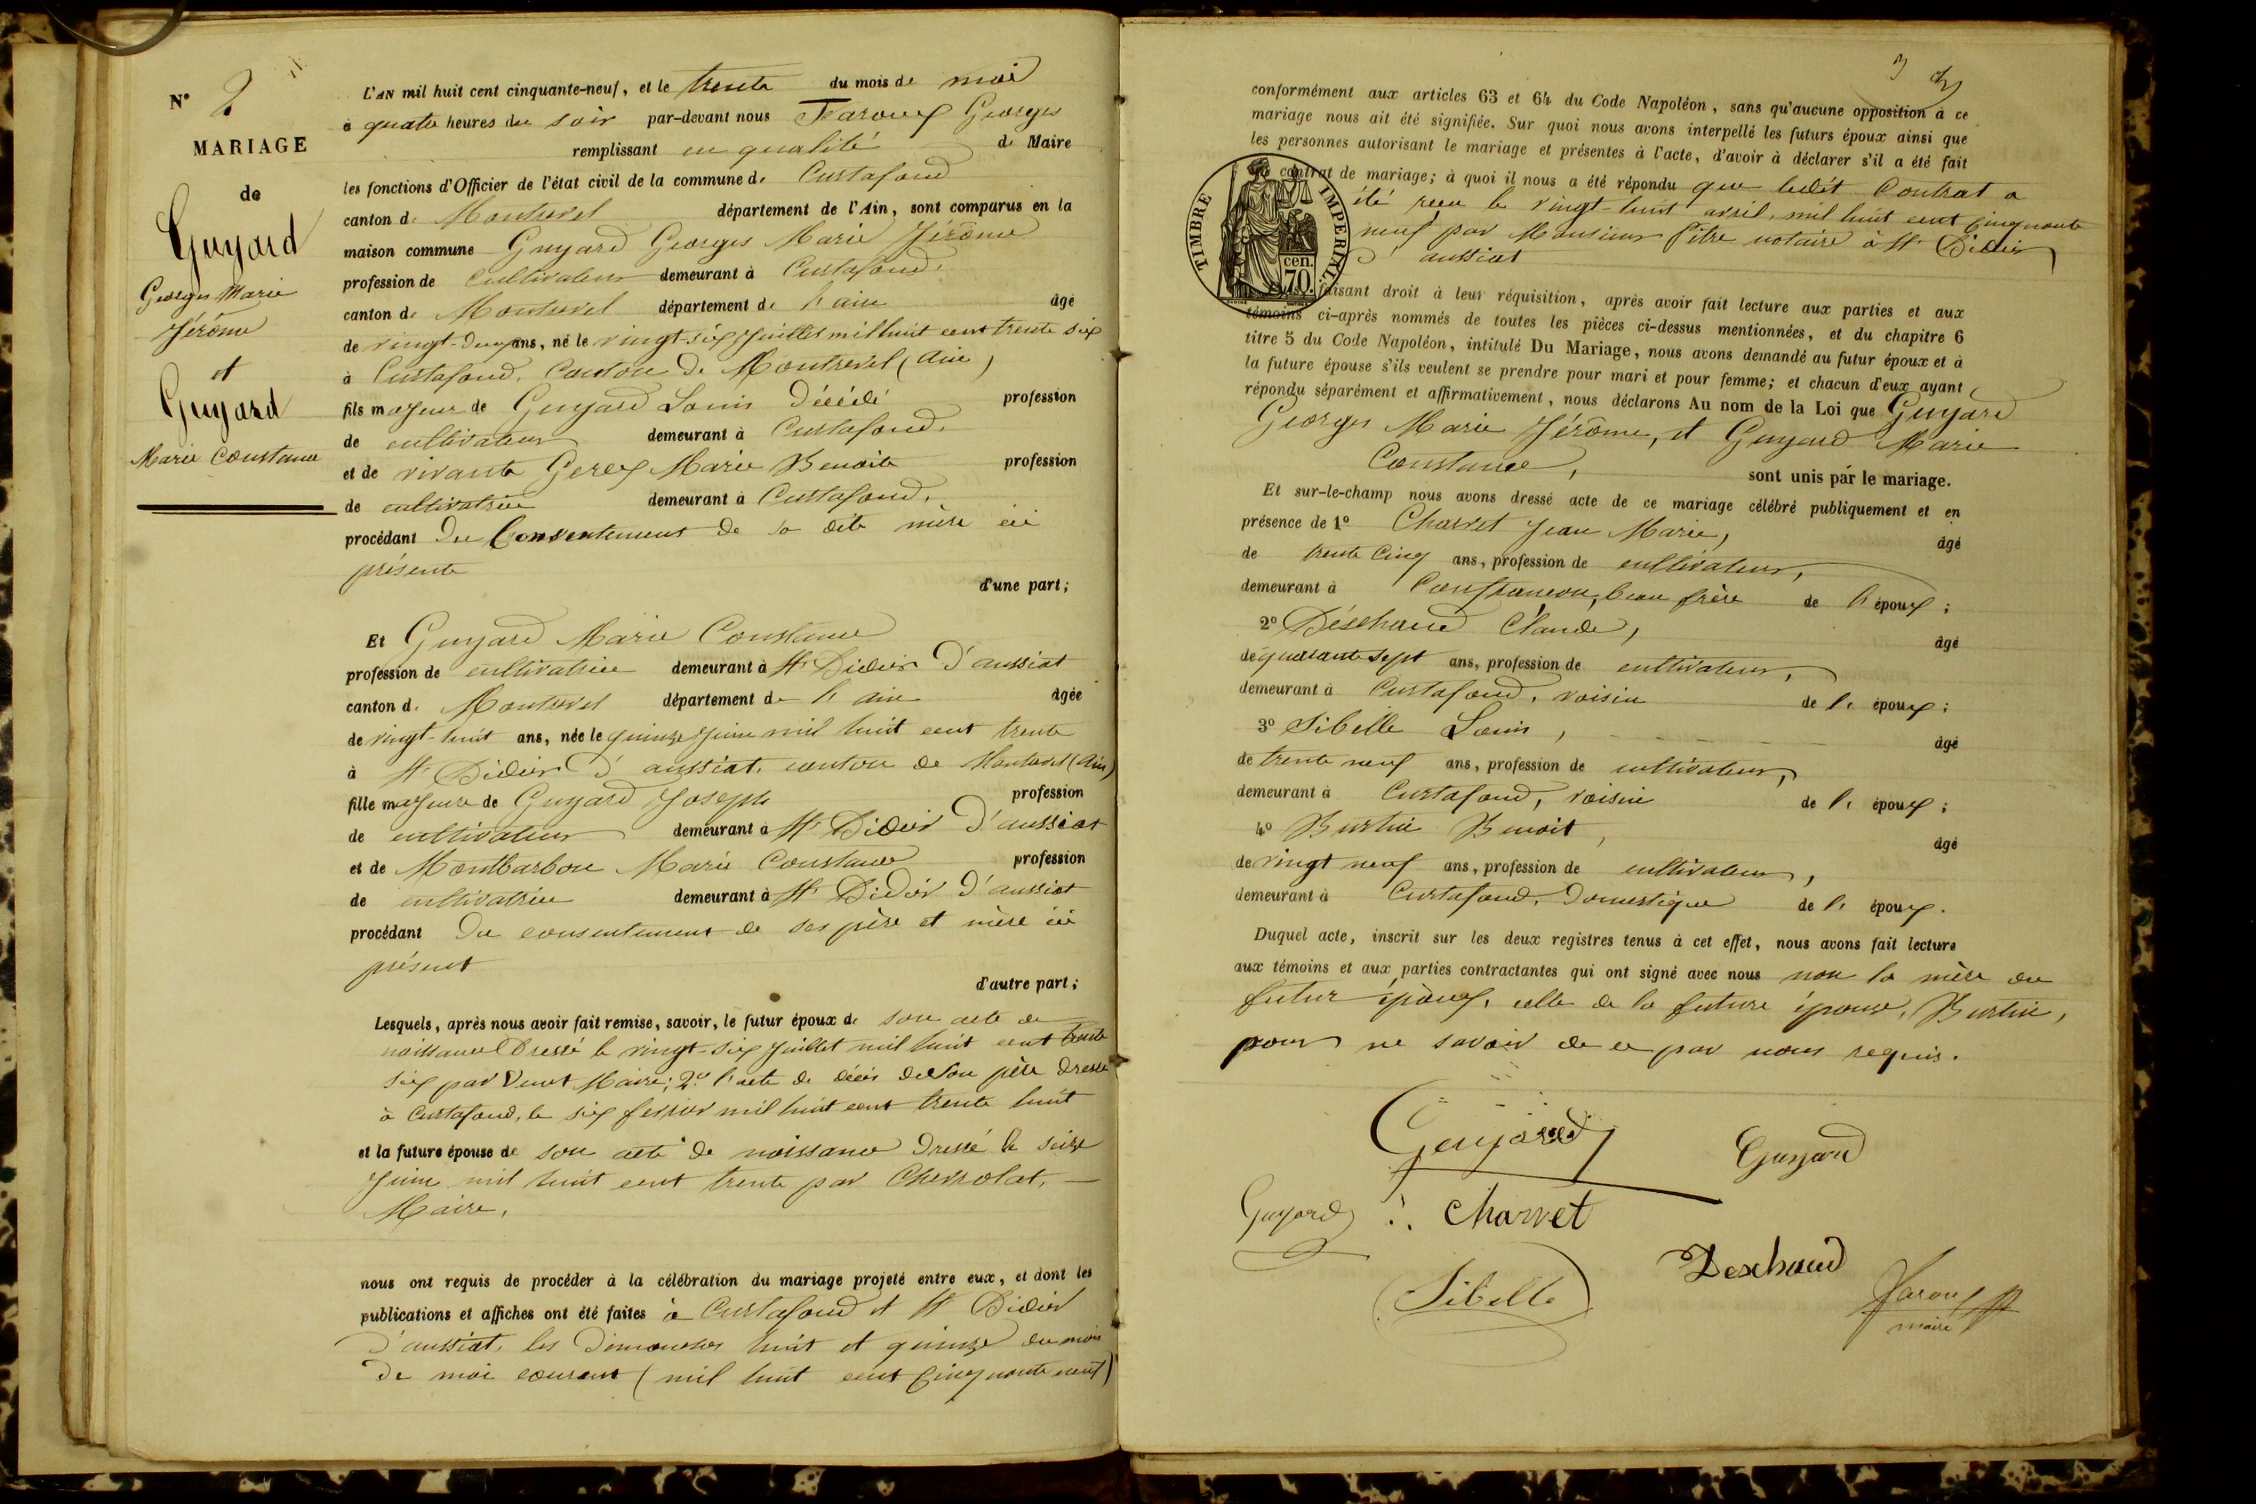 N° 2
MARIAGE
de
Guyard
Georges Marie
Jérôme
et
Guyard
Marie Constance
L'AN mil huit cent cinquante-neuf, et le trente du mois de mai
à quatre heures du soir par-devant nous Georges
remplissant en qualité de Maire
les fonctions d'Officier de l'état civil de la commune de Curtafond
canton de Montrevel département de l'Ain, sont comparus en la
maison commune Guyard Georges Marie Jérôme
profession de cultivateur demeurant à Curtafond,
canton de Montrevel département de l'ain âgé
de vingt-deux ans, né le vingt-six juillet mil huit cent trente six
à Curtafond, Canton de Montrevel (Ain)
fils majeur de Guyard Louis Décédé profession
de cultivateur demeurant à Curtafond,
et de vivante Gerex Marie Benoite profession
de cultivatrice demeurant à Curtafond,
procédant Du Consentement de sa dite mère ici
présente
d'une part;
Et Guyard Marie Constance
profession de cultivatrice demeurant à St Didier d'aussiat
canton de Montrevel département de l'ain âgée
de vingt-huit ans, née le quinze juin mil huit cent trente
à St Didier d'aussiat, canton de Montrevel (Ain)
fille majeure de Guyard Joseph profession
de cultivateur demeurant à St Didier d'aussiat
et de Montbarbon Marie Constance profession
de cultivatrice demeurant à St Didier d'aussiat
procédant Du consentement de ses père et mère ici
présent
d'autre part;
Lesquels, après nous avoir fait remise, savoir, le futur époux de son acte de
naissance Dressé le vingt-six juillet mil huit cent trente
six par Maire; 2° l'acte de décès de son père dressé
à Curtafond, le six fevrier mil huit cent trente huit
et la future épouse de son acte de naissance Dressé le seize
juin mil huit cent trente par Chevrolat,
Maire,
nous ont requis de procéder à la célébration du mariage projeté entre eux, et dont les
publications et affiches ont été faites à Curtafond et St Didier
d'aussiat, les Dimanches huit et quinze du mois
de mai courant (mil huit cent cinquante neuf)
3
conformément aux articles 63 et 64 du Code Napoléon, sans qu'aucune opposition à ce
mariage nous ait été signifiée. Sur quoi nous avons interpellé les futurs époux ainsi que
les personnes autorisant le mariage et présentes à l'acte, d'avoir à déclarer s'il a été fait
contrat de mariage; à quoi il nous a été répondu que ledit Contrat a
été reçu le vingt-huit avril, mil huit cent cinquante
neuf par Monsieur Pitre notaire à St Didier
d'aussiat
TIMBRE IMPÉRIAL
70 cen.
faisant droit à leur réquisition, après avoir fait lecture aux parties et aux
témoins ci-après nommés de toutes les pièces ci-dessus mentionnées, et du chapitre 6
titre 5 du Code Napoléon, intitulé Du Mariage, nous avons demandé au futur époux et à
la future épouse s'ils veulent se prendre pour mari et pour femme; et chacun d'eux ayant
répondu séparément et affirmativement, nous déclarons Au nom de la Loi que Guyard
Georges Marie Jérôme, et Guyard Marie
Constance, sont unis par le mariage.
Et sur-le-champ nous avons dressé acte de ce mariage célébré publiquement et en
présence de 1° Charvet Jean Marie, âgé
de trente cinq ans, profession de cultivateur,
demeurant à Confrançon, beau frère de l'époux;
2° Déschaud Claude, âgé
de quarante sept ans, profession de cultivateur,
demeurant à Curtafond, voisin de l'époux;
3° Sibelle Louis, âgé
de trente neuf ans, profession de cultivateur,
demeurant à Curtafond, voisin de l'époux;
4° Burtin Benoit, âgé
de vingt neuf ans, profession de cultivateur,
demeurant à Curtafond, Domestique de l'époux.
Duquel acte, inscrit sur les deux registres tenus à cet effet, nous avons fait lecture
aux témoins et aux parties contractantes qui ont signé avec nous non la mère du
futur époux, celle de la future épouse, Burtin,
pour ne savoir de ce par nous requis.
Guyard
Guyard
Guyard Charvet
Deschaud
Sibelle
maire